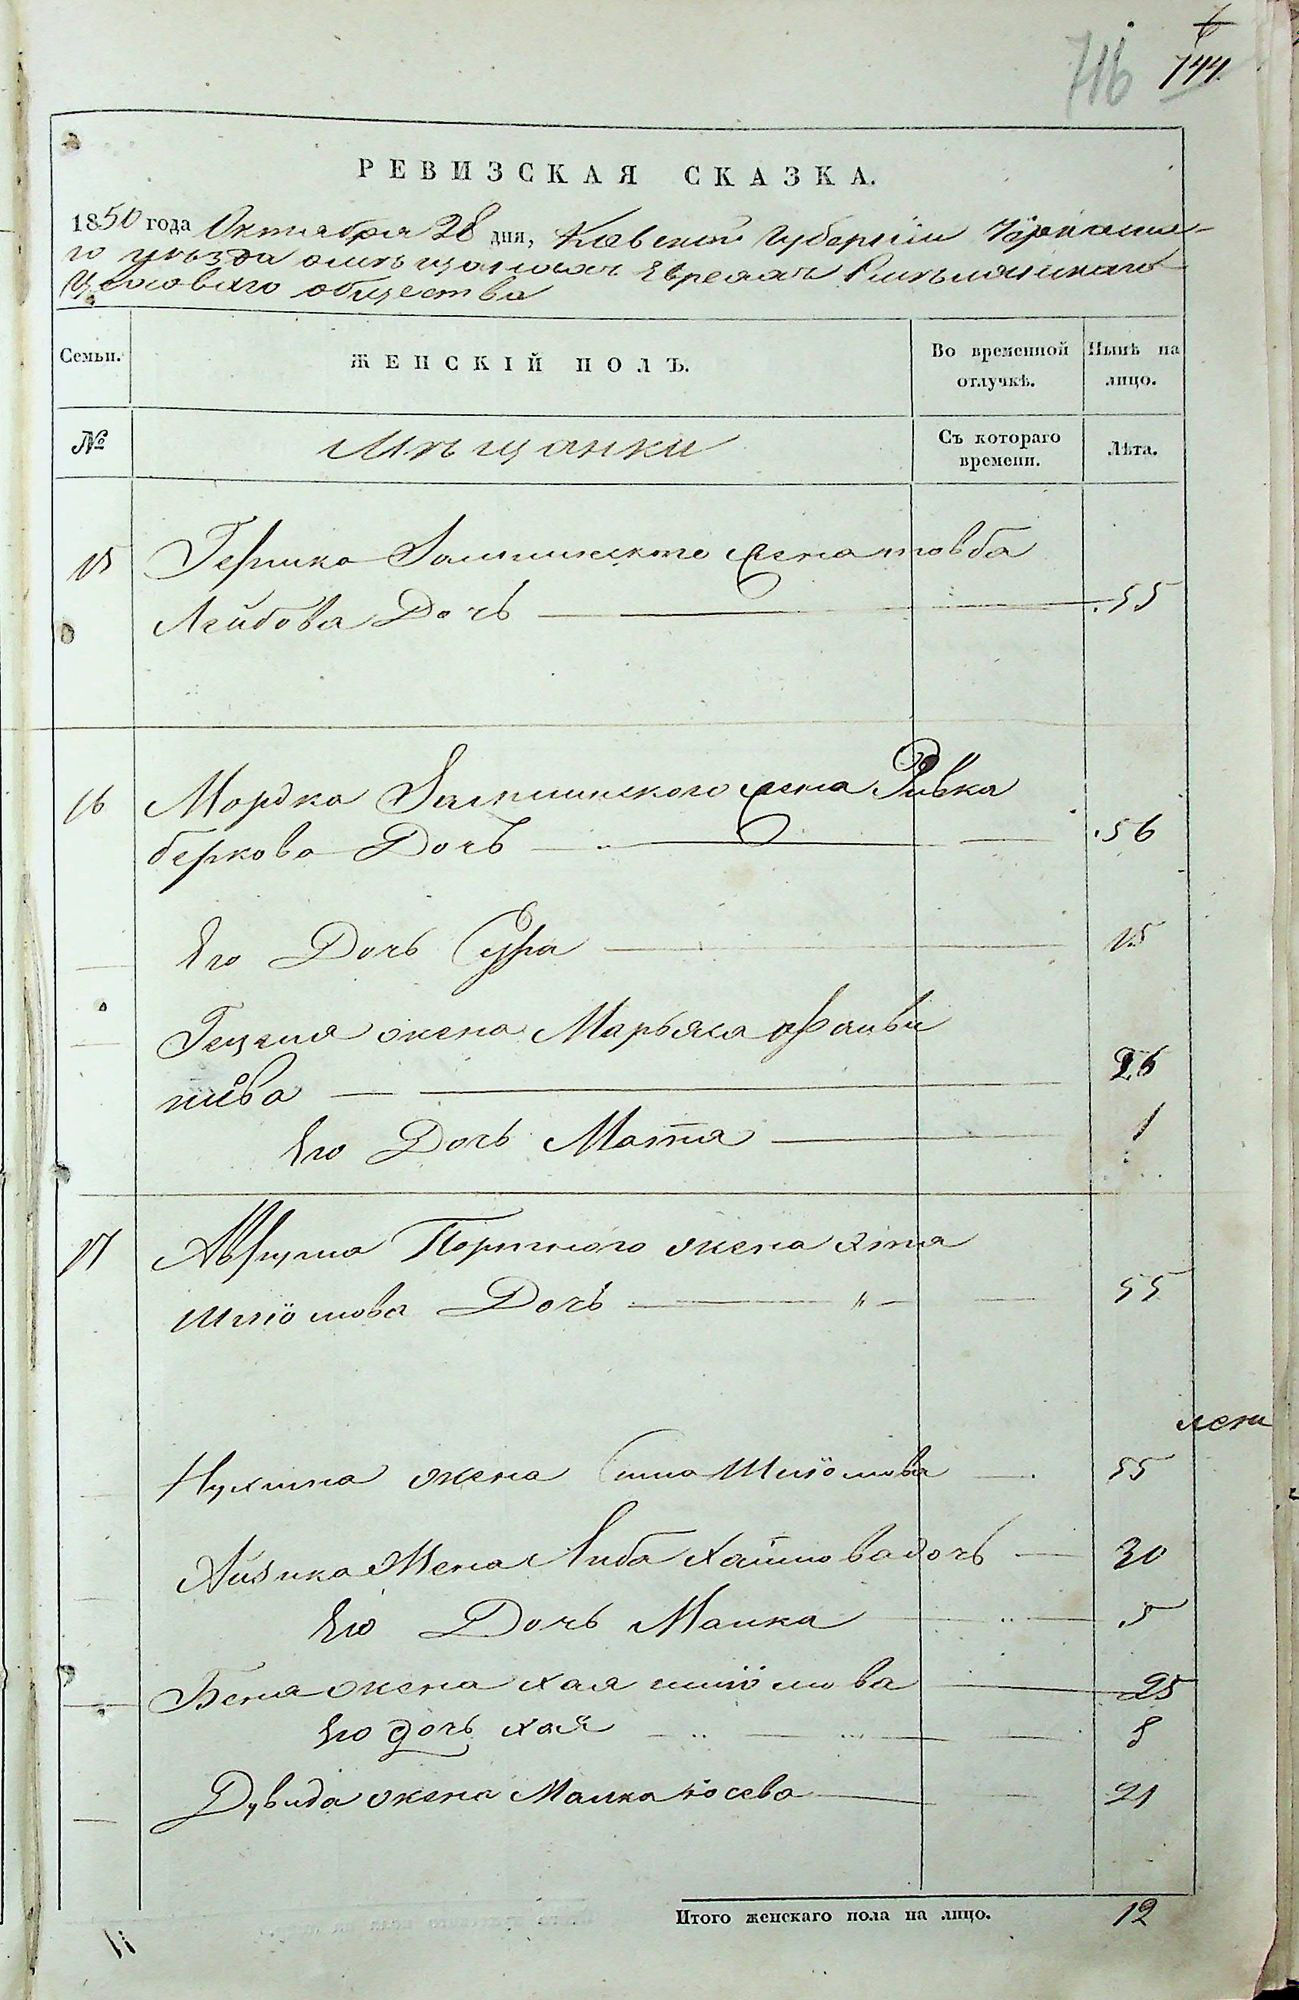 716 744
РЕВИЗСКАЯ СКАЗКА.
1850 года Октября 28 дня, Киевской Губернии
го уезда о мещанах Евреях
общества
Семьи. ЖЕНСКІЙ ПОЛЪ. Во временной отлучкѣ. Нынѣ на лицо.
№ Мѣщанки Съ котораго времени. Лѣта.
15 Гершка жена Товба
Лейбова Дочь 55
16 Мордка жена Ривка
беркова Дочь 56
Его Дочь Сура 15
Гецеля жена Марьяса
26
Его Дочь 1
17 Аврума Портного жена
Шліомова Дочь 55
Нухима жена Шліомова 55
Айзика Жена Либа Хаимова дочь 30
Его Дочь Малка 5
Беня жена хая шліомова 25
Его дочь хая
Дувида жена Малка іосева 21
Итого женскаго пола на лицо. 12